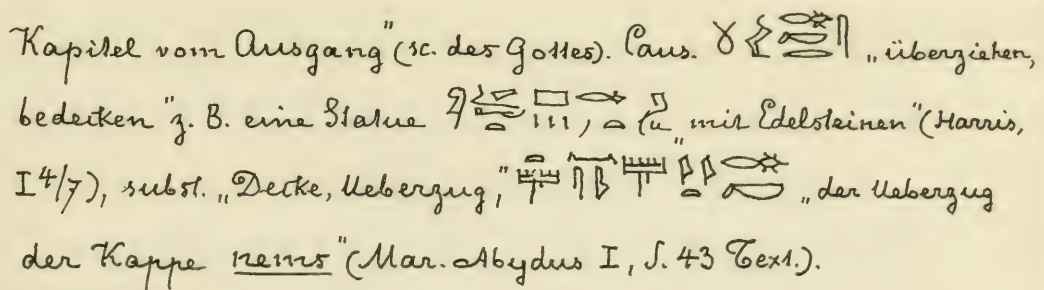 Kapitel vom Ausgang" (sc. des Gottes). Caus. „überziehen,
bedecken" z. B. eine Statue „mit Edelsteinen" (Harris,
I 4/7), subst. „Decke, Ueberzug," „der Ueberzug
der Kappe nems" (Mar. Abydus I, S. 43 Text.).